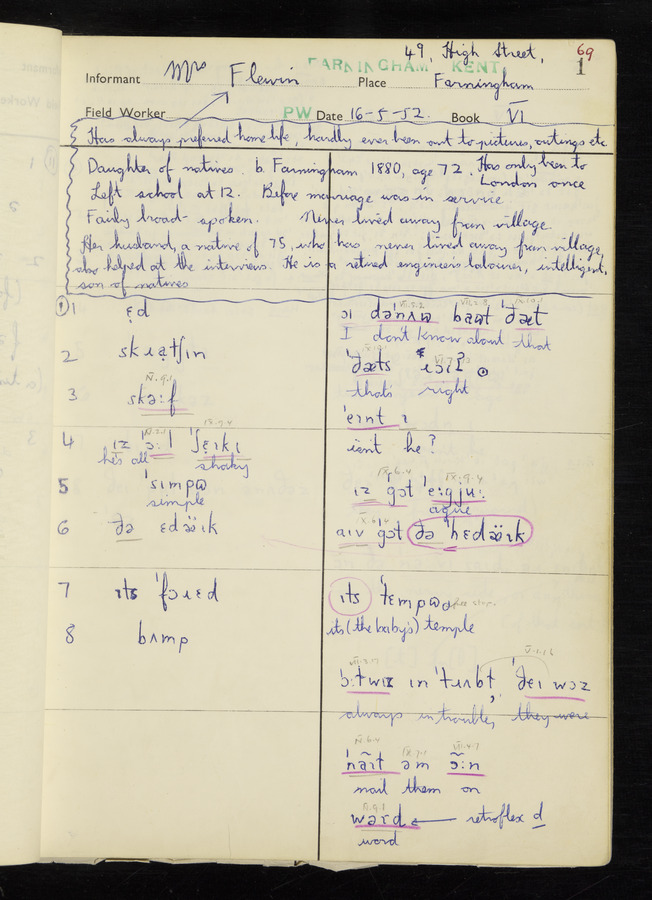 49, High Street,
69
FARNINGHAM KENT
1
Informant Mrs Flewin Place Farningham
Field Worker PW Date 16-5-52. Book VI
Has always preferred home life, hardly ever been out to pictures, outings etc.
Daughter of natives. b. Farningham 1880, age 72. Has only been to
London once
Left school at 12. Before marriage was in service
Fairly broad-spoken. Never lived away from village.
Her husband, a native of 75, who has never lived away from village,
also helped at the interviews. He is a retired engineer's labourer, intelligent,
son of natives
1 ɛd
I don't know about that
2 skɹatʃɪn
ðæts
that's right
3 skəːf
'eɪnt ɪ
isn't he?
4 ɪz ɔːl ʃɛɪkɪ
he's all shaky
5 'sɪmpɷ
simple
ɪz gɔt 'eːgjuː
ague
6 ðə ɛdäɪk
aɪv gɔt ðə 'hɛdäɪk
7 ɪts 'fɔɹɛd
ɪts 'tɛmpɷ
its (the baby's) temple
8 bʌmp
ɔːtwɪz ɪn 'tɹʌbt, 'ðeɪ wɔz
always in trouble, they were
'naɪt əm ɔːn
nail them on
wərd ← retroflex d
word